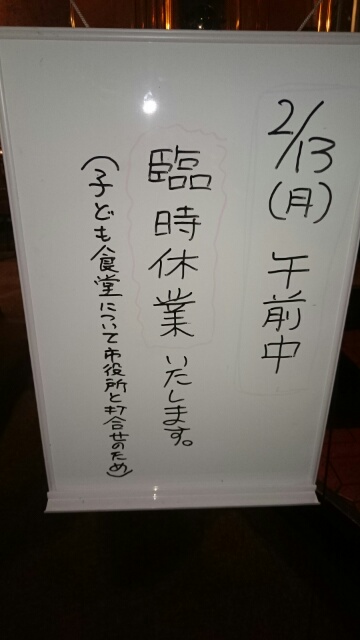 2/13(月) 午前中
臨時休業いたします。
(子ども食堂について市役所と打合せのため)